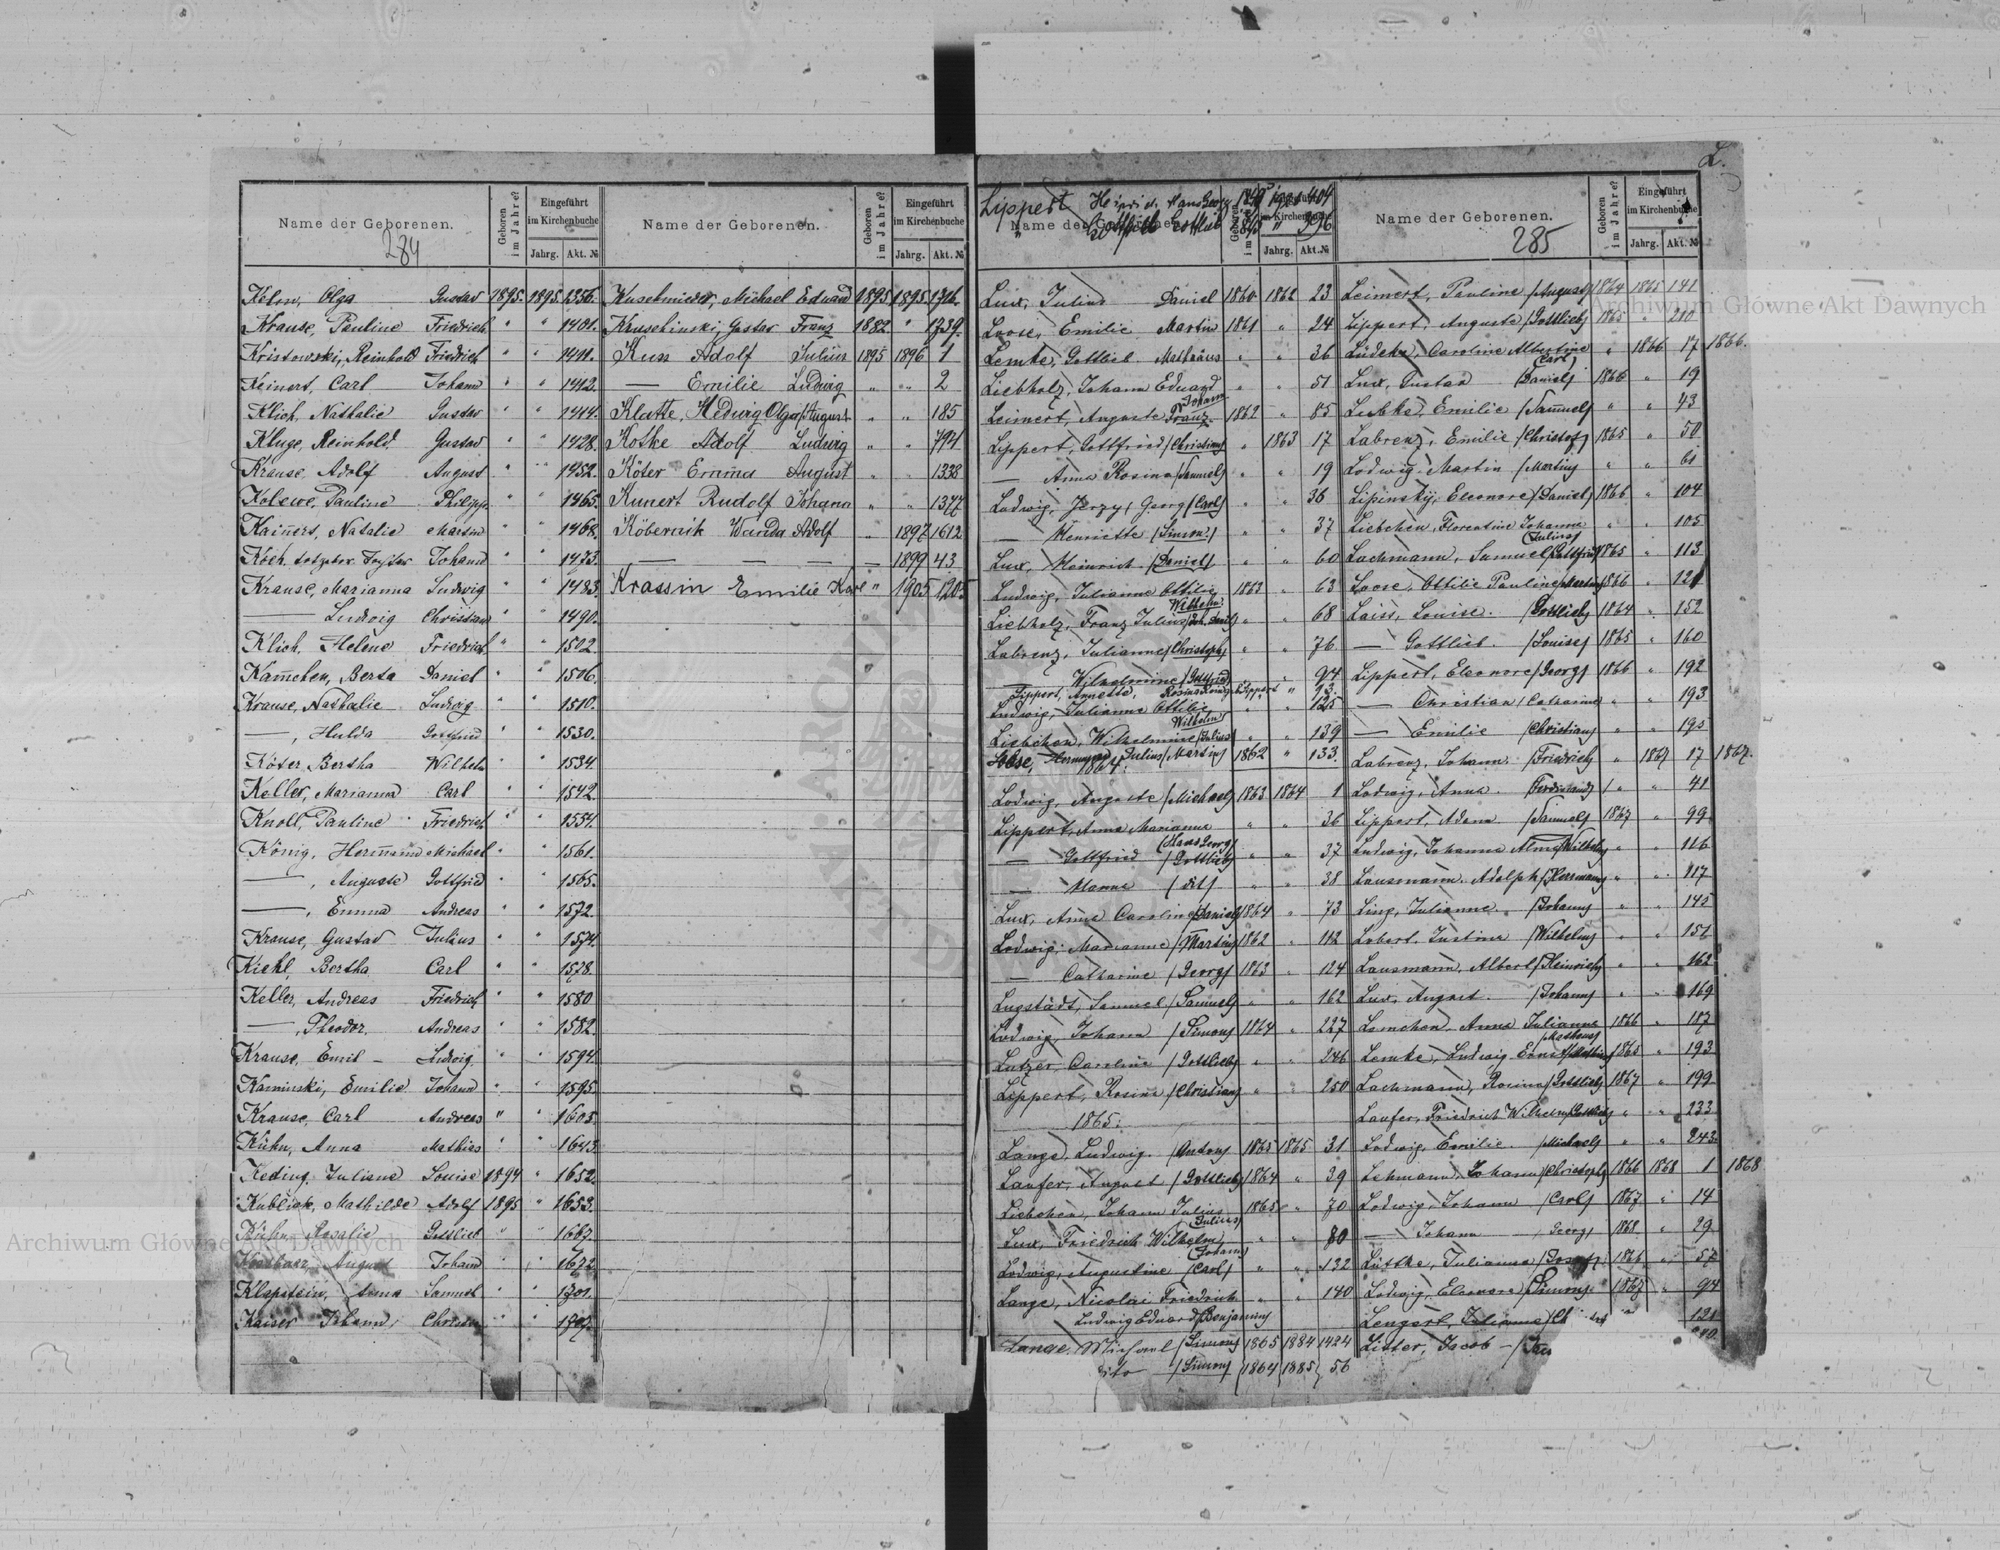 L.
Name der Geborenen. Geboren im Jahre? Eingeführt im Kirchenbuche Jahrg. Akt. №
284
Kelm, Olga Gustav 1895. 1895. 1356.
Krause, Pauline Friedrich " " 1401.
Kristowski, Reinhold Friedrich " " 1411.
Keinert, Carl Johann " " 1412.
Klich, Nathalie Gustav " " 1414.
Kluge, Reinhold Gustav " " 1428.
Krause, Adolf August " " 1452.
Kolewe, Pauline Philipp " " 1465.
Kainert, Natalie Martin " " 1468.
Koch Johann " " 1473.
Krause, Marianna Ludwig " " 1483.
— Ludwig Christian " " 1490.
Klich, Helene Friedrich " " 1502
Kam̄chen, Berta Daniel " " 1506.
Krause, Nathalie Ludwig " " 1510.
—, Hulda Gottfried " " 1530.
Köter, Bertha Wilhelm " " 1534
Keller, Marianna Carl " " 1542
Knoll, Pauline Friedrich " " 1554.
König, Herm̄ann Michael " " 1561.
—, Auguste Gottfried " " 1565.
—, Emma Andreas " " 1572.
Krause, Gustav Julius " " 1574.
Kiehl, Bertha Carl " " 1578.
Keller, Andreas Friedrich " " 1580
—, Theodor, Andreas " " 1582.
Krause, Emil – Ludwig " " 1594.
Kaminski, Emilie Johann " " 1595.
Krause, Carl Andreas " " 1603.
Kühn, Anna Mathias " " 1643.
Keding, Juliana Louise 1894 " 1652.
Kubliak, Mathilde Adolf 1895 " 1653.
Kühn, Rosalie Gottlieb " " 1667.
August Johann " " 1672
Klapstein, Anna Samuel " " 1701.
Kaiser Johann, Christian " "
Name der Geborenen. Geboren im Jahre? Eingeführt im Kirchenbuche Jahrg. Akt. №
Kuschmieder, Michael Eduard 1895. 1895. 1716.
Kruschinski, Gustav Franz 1882. " 1739.
Kuss Adolf Julius 1895 1896 1
— Emilie Ludwig " " 2
Klatte, Hedwig Olga /August " " 185
Kotke Adolf Ludwig " " 794
Köter Emma August " " 1338
Kunert Rudolf Johann " " 1377
Köbernik Wanda Adolf " 1897 1612
— — — — — 1899 43
Krassin Emilie Karl " 1905 1205
Lippert Heinrich Hans Georg 1849 404
" Gottlieb Gottlieb " 396
Name der Geborenen. Geboren im Jahre? Eingeführt im Kirchenbuche Jahrg. Akt. №
Lux, Julius Daniel 1860 1862 23
Loose, Emilie Martin 1861 " 24
Lemke, Gottlieb Mathäus " " 36
Liebholz, Johann Eduard " " 51
Johann
Leimert, Auguste Franz 1862 " 85
Lippert, Gottfried /Christian/ " 1863 17
— Anna Rosina /Samuel/ " " 19
Ludwig, Jerzy, Georg /Carl/ " " 36
— Henriette /Simon/ " " 37
Lux, Heinrich /Daniel/ " " 60
Ludwig, Julianna Ottilie 1863 " 63
Wilhelm
Liebholz, Franz Julius /Joh. Daniel/ " " 68
Labrenz, Julianne /Christoph/ " " 76
— Wilhelmine /Gottfried/ " " 94
Lippert, Annette, Rosina Lippert " 93
Ludwig, Julianne Ottilie " " 125
Wilhelm
Liebchen, Wilhelmine /Julius/ " " 139
Julius /Martin/ 1862 " 133
1864.
Ludwig, Auguste /Michael/ 1863 1864 1
Lippert, Anna Marianna " " 36
/Hans Georg/
— Gottfried /Gottlieb/ " " 37
— Hanna /dit/ " " 38
Lux, Anna Caroline /Daniel/ 1864 " 73
Ludwig, Marianne /Martin/ 1862 " 112
— Catharine /Georg/ 1863 " 124
Lugstädt, Samuel /Samuel/ " " 162
Ludwig, Johann /Simon/ 1864 " 227
Lutzer, Caroline /Gottlieb/ " " 246
Lippert, Rosina /Christian/ " " 250
1865.
Lange, Ludwig /Anton/ 1865 1865 31
Laufer, August /Gottlieb/ 1864 " 39
Liebchen, Johann Julius 1865 " 70
/Julius/
Lux, Friedrich Wilhelm " " 80
/Johann/
Ludwig, Augustine /Carl/ " " 122
Lange, Nicolai Friedrich " " 140
Ludwig Eduard /Benjamin/
Lange, Michael /Simon/ 1865 1884 1424
dito /Simon/ 1864 1885 56
Name der Geborenen. Geboren im Jahre? Eingeführt im Kirchenbuche Jahrg. Akt. №
285
Leimert, Pauline /August/ 1864 1865 141
Lippert, Auguste /Gottlieb/ 1865 " 210
Lüdeke, Caroline Albertine " 1866 17 1866.
/Carl/
Lux, Gustav /Daniel/ 1866 " 19
Lubke, Emilie /Samuel/ " " 43
Labrenz, Emilie /Christof/ 1865 " 50
Ludwig, Martin /Martin/ " " 61
Lipinsky, Eleonore /Daniel/ 1866 " 104
Liebchen, Florentine Johanna " " 105
/Julius/
Lachmann, Samuel /Gottfried/ 1865 " 113
Loose, Ottilie Pauline /Martin/ 1866 " 121
Laiss, Louise. /Gottlieb/ 1864 " 152
— Gottlieb. /Louise/ 1865 " 160
Lippert, Eleonore /Georg/ 1866 " 192
— Christian /Catharine/ " " 193
— Emilie /Christian/ " " 195
Labrenz, Johann /Friedrich/ " 1867 17 1867.
Ludwig, Anna. /Ferdinand/ " " 41
Lippert, Adam /Samuel/ 1867 " 99
Ludwig, Johanna Alma /Wilhelm/ " " 116
Lausmann, Adolph /Herrmann/ " " 117
Ling, Julianne /Johann/ " " 145
Lobert, Justine /Wilhelm/ " " 151
Lausmann, Albert /Heinrich/ " " 162
Lux, August. /Johann/ " " 169
Lemchen, Anna Julianna 1866 " 187
/Mathäus/
Lemke, Ludwig Ernst /Mathias/ 1865 " 193
Lachmann, Rosina /Gottlieb/ 1867 " 199
Laufer, Friedrich Wilhelm /Gottlieb/ " " 233
Ludwig, Emilie. /Michael/ " " 243
Lehmann, Johann /Christoph/ 1866 1868 1 1868
Ludwig, Johann /Carl/ 1867 " 14
— Johann /Georg/ 1868 " 29
Lüttke, Julianna /Joseph/ 1866 " 57
Ludwig, Eleonore /Simon/ 1867 " 94
Lengert, Julianna 121
Lister, Jacob –
Archiwum Główne Akt Dawnych
Archiwum Główne Akt Dawnych